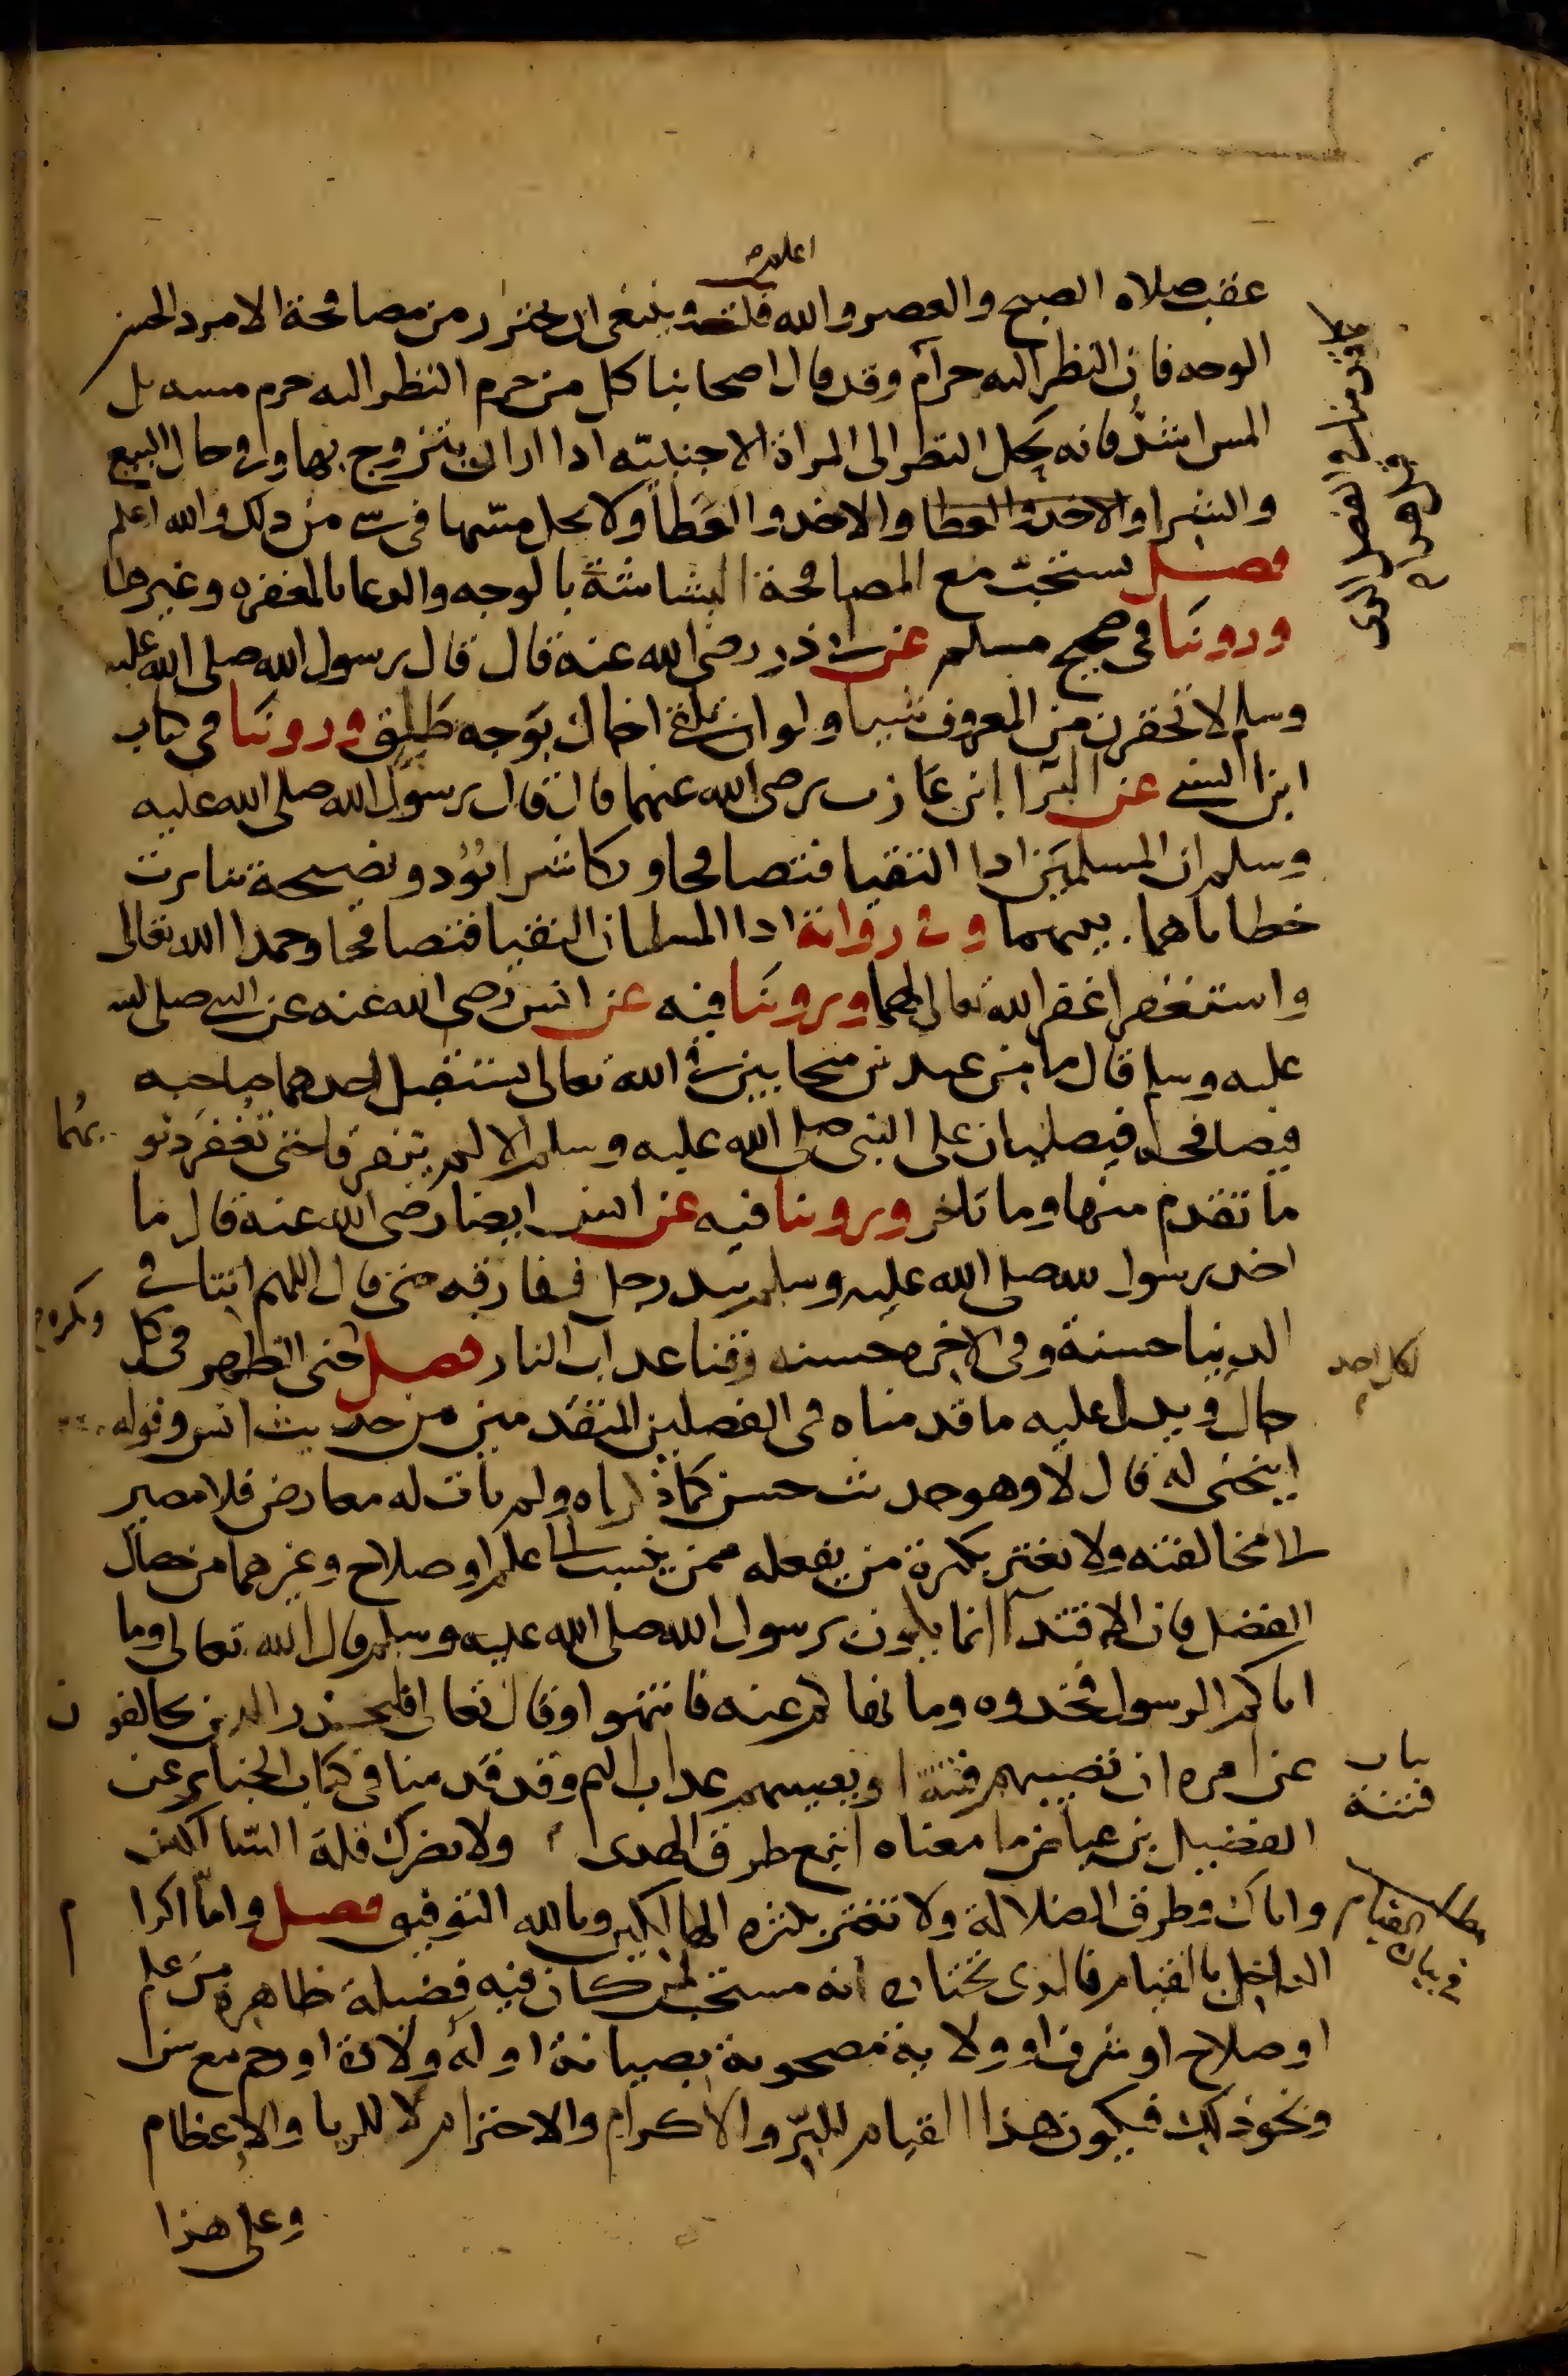 اعلم
عقب صلاه الصبح والعصر والله قلت وينبغى ان يحترز من مصافحة الامرد الحسن
الوجه فان النظر اليه حرام وقد قال اصحابنا كل من حرم النظر اليه حرم مسه بل
المس اشد فانه يحل النظر الى المراة الاجنبيه اذا اراد ان يتزوج بها وفي حال البيع
والشرا والاخذ والعطا والاخذ والعطا ولا يحل مسها فى شي من ذلك والله اعلم
فصل يستحب مع المصافحة البشاشة بالوجه والدعا بالمغفره وغيرها
وروينا فى صحيح مسلم عن ابي ذر رضي الله عنه قال قال رسول الله صلى الله عليه
وسلم لا تحقرن من المعروف شيا ولو ان تلقى اخاك بوجه طليق وروينا في كتاب
ابن السني عن البرا ابن عازب رضي الله عنهما قال قال رسول الله صلى الله عليه
وسلم ان المسلمين اذا التقيا فتصافحا وتكاشرا بود ونصيحة تناثرت
خطاياهما بينهما وفي رواية اذا المسلمان التقيا فتصافحا وحمدا الله تعالى
واستغفرا غفر الله تعالى لهما وروينا فيه عن انس رضي الله عنه عن النبي صلى الله
عليه وسلم قال ما من عبدين متحابين في الله تعالى يستقبل احدهما صاحبه
فيصافحه فيصليان على النبي صلى الله عليه وسلم الا لم يتفرقا حتى تغفر ذنو بهما
ما تقدم منها وما تاخر وروينا فيه عن انس ايضا رضي الله عنه قال ما
اخذ رسول الله صلى الله عليه وسلم بيد رجل ففارقه حتى قال اللهم اتنا في
الدنيا حسنة وفي الاخره حسنه وقنا عذاب النار فصل حنى الظهر فى كل
ويكره
لكل احد
حال ويدل عليه ما قدمناه فى الفصلين المتقدمين من حديث انس وقوله
اينحنى له قال لا وهو حديث حسن كما ذكرناه ولم يات له معارض فلا مصير
الى مخالفته ولا تغتر بكثرة من يفعله ممن ينسب الى علم او صلاح وغيرهما من خصال
الفضل فان الاقتدآ انما يكون برسول الله صلى الله عليه وسلم قال الله تعالى وما
اتاكم الرسول فخذوه وما نهاكم عنه فانتهوا وقال تعالى فليحذر الذين يخالفون
عن امره ان تصيبهم فتنة او يصيبهم عذاب اليم وقد قدمنا في كتاب الجنايز عن
باب
فتنة
الفضيل بن عياض ما معناه اتبع طرق الهدى ولا يضرك قلة السالكين
واياك وطرق الضلالة ولا تغتر بكثره الهالكين وبالله التوفيق فصل واما اكرا م
مطلب القيام
في بيان
الداخل بالقيام فالذى نختاره انه مستحب لمن كان فيه فضيلة ظاهرة من علم
او صلاح او شرف او ولاية مصحوبة بصيانة او له ولادة او رحم مع سن
ونحو ذلك فيكون هذا القيام للبر والاكرام والاحترام لا للريا والاعظام
وعلى هذا